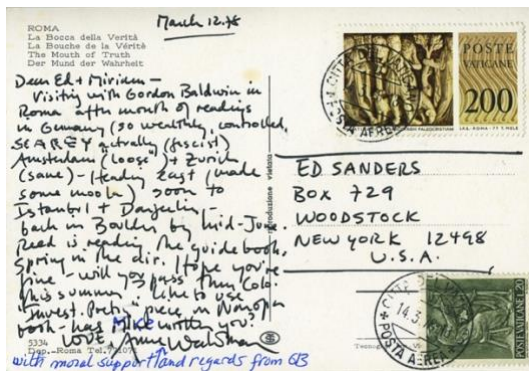 March 12.78
ROMA
La Bocca della Verità
La Bouche de la Vérité
The Mouth of Truth
Der Mund der Wahrheit
Dear Ed + Miriam –
Visiting with Gordon Baldwin in
Rome after month of readings
in Germany (so wealthy, controlled,
SCAREY actually (fascist)
Amsterdam (loose) + Zurich
(sane) – Heading east (made
some moola) soon to
Istanbul + Darjeeling –
back in Boulder by mid-June
Reed is reading the guidebook.
Spring in the air. Hope you're
fine – will you pass thru Colo.
this summer? Like to use
"Invest. Poetry" piece in Naropa
book – has Mike written you?
LOVE, Anne Waldman
with moral support and regards from GB
5334
Dep. Roma Tel.
riproduzione vietata
POSTE
VATICANE
200
CITTÀ DEL VATICANO
POSTA AEREA
ED SANDERS
BOX 729
WOODSTOCK
NEW YORK 12498
U.S.A.
POSTE VATICANE
CITTÀ DEL
14.3
POSTA AEREA